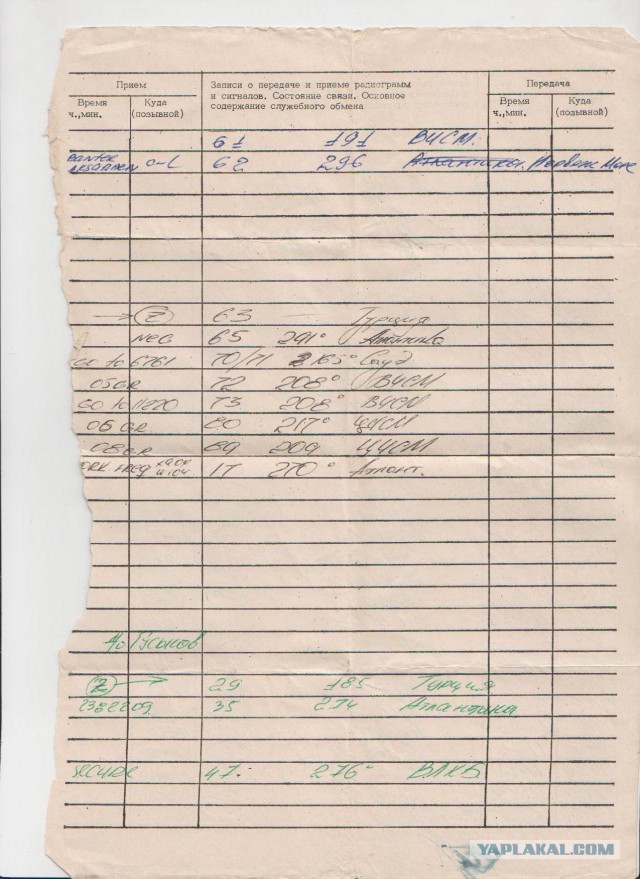 Прием
Записи о передаче и приеме радиограмм и сигналов. Состояние связи. Основное содержание служебного обмена
Передача
Время ч.,мин.
Куда (позывной)
Время ч.,мин.
Куда (позывной)
61 191 ВЧСМ.
62 296 Атлантика.
→ Z 63 — Турция
NEG 65 291° Атлантика
to 6761 70/71 265° Сауд
05GR 72 208° ВЧСМ
GO to 11220 73 208° ВЧСМ
06 GR 80 217° ЦЧСМ
08GR 89 209 ЦЧСМ
FREQ 1T 270° Атлант.
Z → 29 185 Турция
2382209 35 274 Атлантика
SECURE 47. 276° ВЛКБ
YAPLAKAL.COM